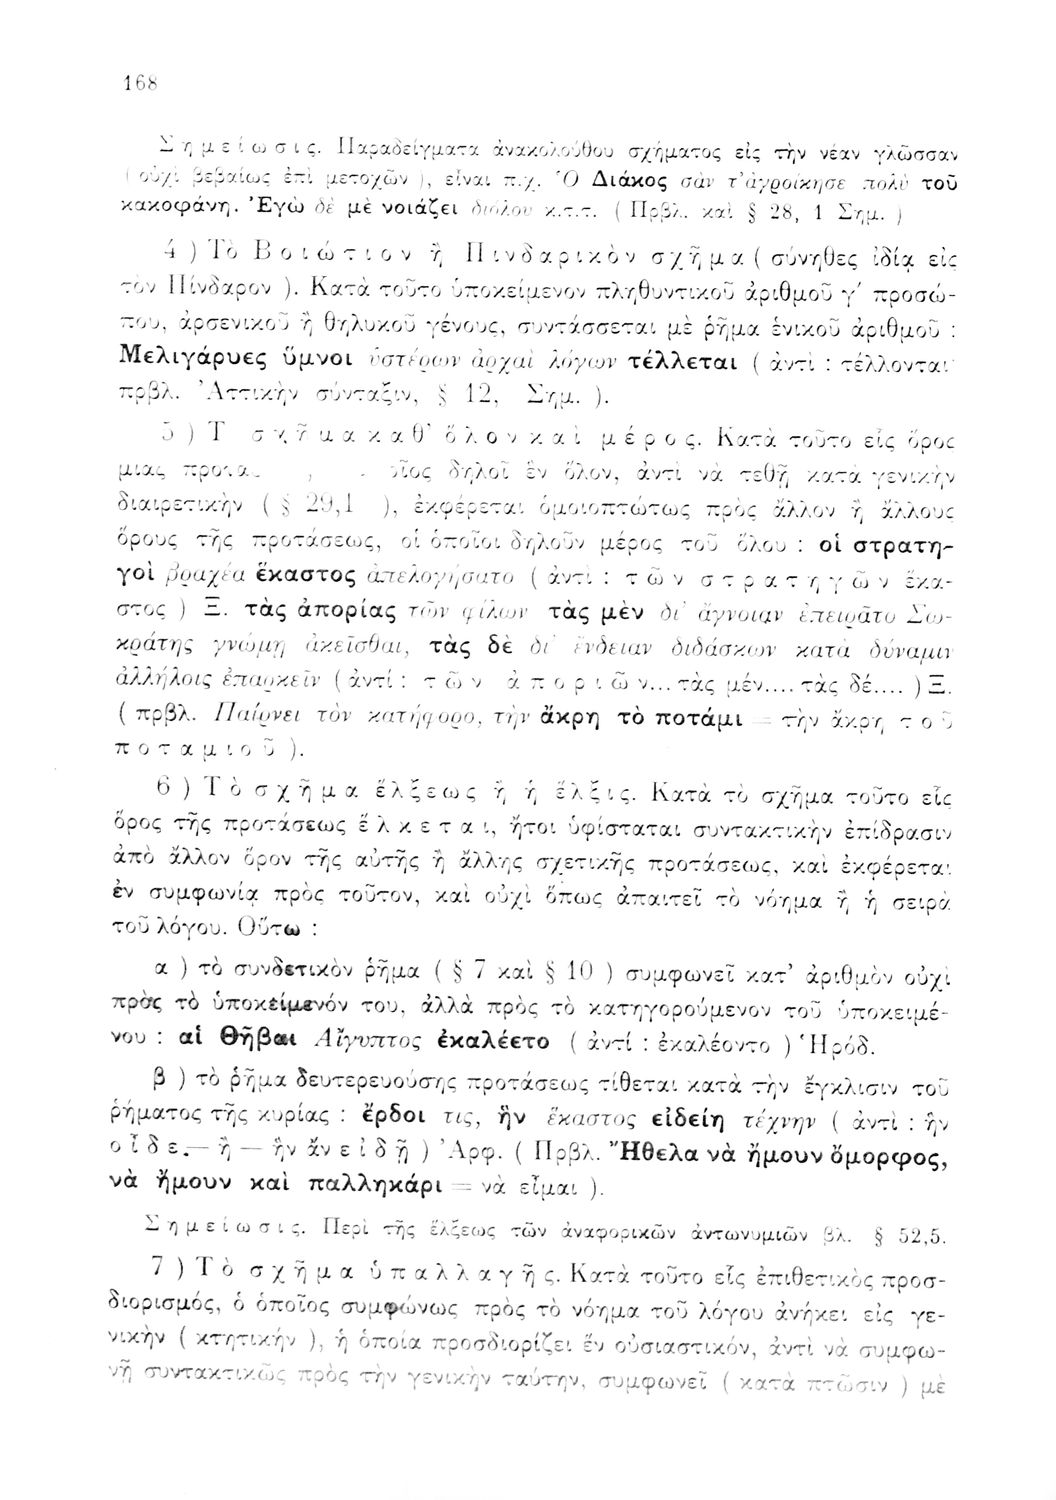 168
Σημείωσις. Παραδείγματα ἀνακολούθου σχήματος εἰς τὴν νέαν γλῶσσαν
( οὐχὶ βεβαίως ἐπὶ μετοχῶν ), εἶναι π.χ. Ὁ Διάκος σὰν τ' ἀγροίκησε πολὺ τοῦ
κακοφάνη. Ἐγὼ δὲ μὲ νοιάζει διόλου κ.τ.τ. ( Πρβλ. καὶ § 28, 1 Σημ. )
4 ) Τὸ Βοιώτιον ἢ Πινδαρικὸν σχῆμα ( σύνηθες ἰδίᾳ εἰς
τὸν Πίνδαρον ). Κατὰ τοῦτο ὑποκείμενον πληθυντικοῦ ἀριθμοῦ γ' προσώ-
που, ἀρσενικοῦ ἢ θηλυκοῦ γένους, συντάσσεται μὲ ῥῆμα ἑνικοῦ ἀριθμοῦ :
Μελιγάρυες ὕμνοι ὑστέρων ἀρχαὶ λόγων τέλλεται ( ἀντὶ : τέλλονται·
πρβλ. Ἀττικὴν σύνταξιν, § 12, Σημ. ).
5 ) Τ σχῆμα καθ' ὅλον καὶ μέρος. Κατὰ τοῦτο εἷς ὅρος
μιας δηλοῖ ἓν ὅλον, ἀντὶ νὰ τεθῇ κατὰ γενικὴν
διαιρετικὴν ( § 29,1 ), ἐκφέρεται ὁμοιοπτώτως πρὸς ἄλλον ἢ ἄλλους
ὅρους τῆς προτάσεως, οἱ ὁποῖοι δηλοῦν μέρος τοῦ ὅλου : οἱ στρατη-
γοὶ βραχέα ἕκαστος ἀπελογήσατο ( ἀντὶ : τῶν στρατηγῶν ἕκα-
στος ) Ξ. τὰς ἀπορίας τῶν φίλων τὰς μὲν δι' ἄγνοιαν ἐπειρᾶτο Σω-
κράτης γνώμῃ ἀκεῖσθαι, τὰς δὲ δι' ἔνδειαν διδάσκων κατὰ δύναμιν
ἀλλήλοις ἐπαρκεῖν ( ἀντί : τῶν ἀποριῶν... τὰς μέν.... τὰς δέ.... ) Ξ.
( πρβλ. Παίρνει τὸν κατήφορο, τὴν ἄκρη τὸ ποτάμι = τὴν ἄκρη τοῦ
ποταμιοῦ ).
6 ) Τὸ σχῆμα ἕλξεως ἢ ἡ ἕλξις. Κατὰ τὸ σχῆμα τοῦτο εἷς
ὅρος τῆς προτάσεως ἕλκεται, ἤτοι ὑφίσταται συντακτικὴν ἐπίδρασιν
ἀπὸ ἄλλον ὅρον τῆς αὐτῆς ἢ ἄλλης σχετικῆς προτάσεως, καὶ ἐκφέρεται
ἐν συμφωνίᾳ πρὸς τοῦτον, καὶ οὐχὶ ὅπως ἀπαιτεῖ τὸ νόημα ἢ ἡ σειρὰ
τοῦ λόγου. Οὕτω :
α ) τὸ συνδετικὸν ῥῆμα ( § 7 καὶ § 10 ) συμφωνεῖ κατ' ἀριθμὸν οὐχὶ
πρὸς τὸ ὑποκείμενόν του, ἀλλὰ πρὸς τὸ κατηγορούμενον τοῦ ὑποκειμέ-
νου : αἱ Θῆβαι Αἴγυπτος ἐκαλέετο ( ἀντί : ἐκαλέοντο ) Ἡρόδ.
β ) τὸ ῥῆμα δευτερευούσης προτάσεως τίθεται κατὰ τὴν ἔγκλισιν τοῦ
ῥήματος τῆς κυρίας : ἔρδοι τις, ἣν ἕκαστος εἰδείη τέχνην ( ἀντὶ : ἣν
οἶδε.— ἢ — ἣν ἂν εἰδῇ ) Ἀρφ. ( Πρβλ. Ἤθελα νὰ ἤμουν ὄμορφος,
νὰ ἤμουν καὶ παλληκάρι = νὰ εἶμαι ).
Σημείωσις. Περὶ τῆς ἕλξεως τῶν ἀναφορικῶν ἀντωνυμιῶν βλ. § 52,5.
7 ) Τὸ σχῆμα ὑπαλλαγῆς. Κατὰ τοῦτο εἷς ἐπιθετικὸς προσ-
διορισμός, ὁ ὁποῖος συμφώνως πρὸς τὸ νόημα τοῦ λόγου ἀνήκει εἰς γε-
νικὴν ( κτητικήν ), ἡ ὁποία προσδιορίζει ἓν οὐσιαστικόν, ἀντὶ νὰ συμφω-
νῇ συντακτικῶς πρὸς τὴν γενικὴν ταύτην, συμφωνεῖ ( κατὰ πτῶσιν ) μὲ